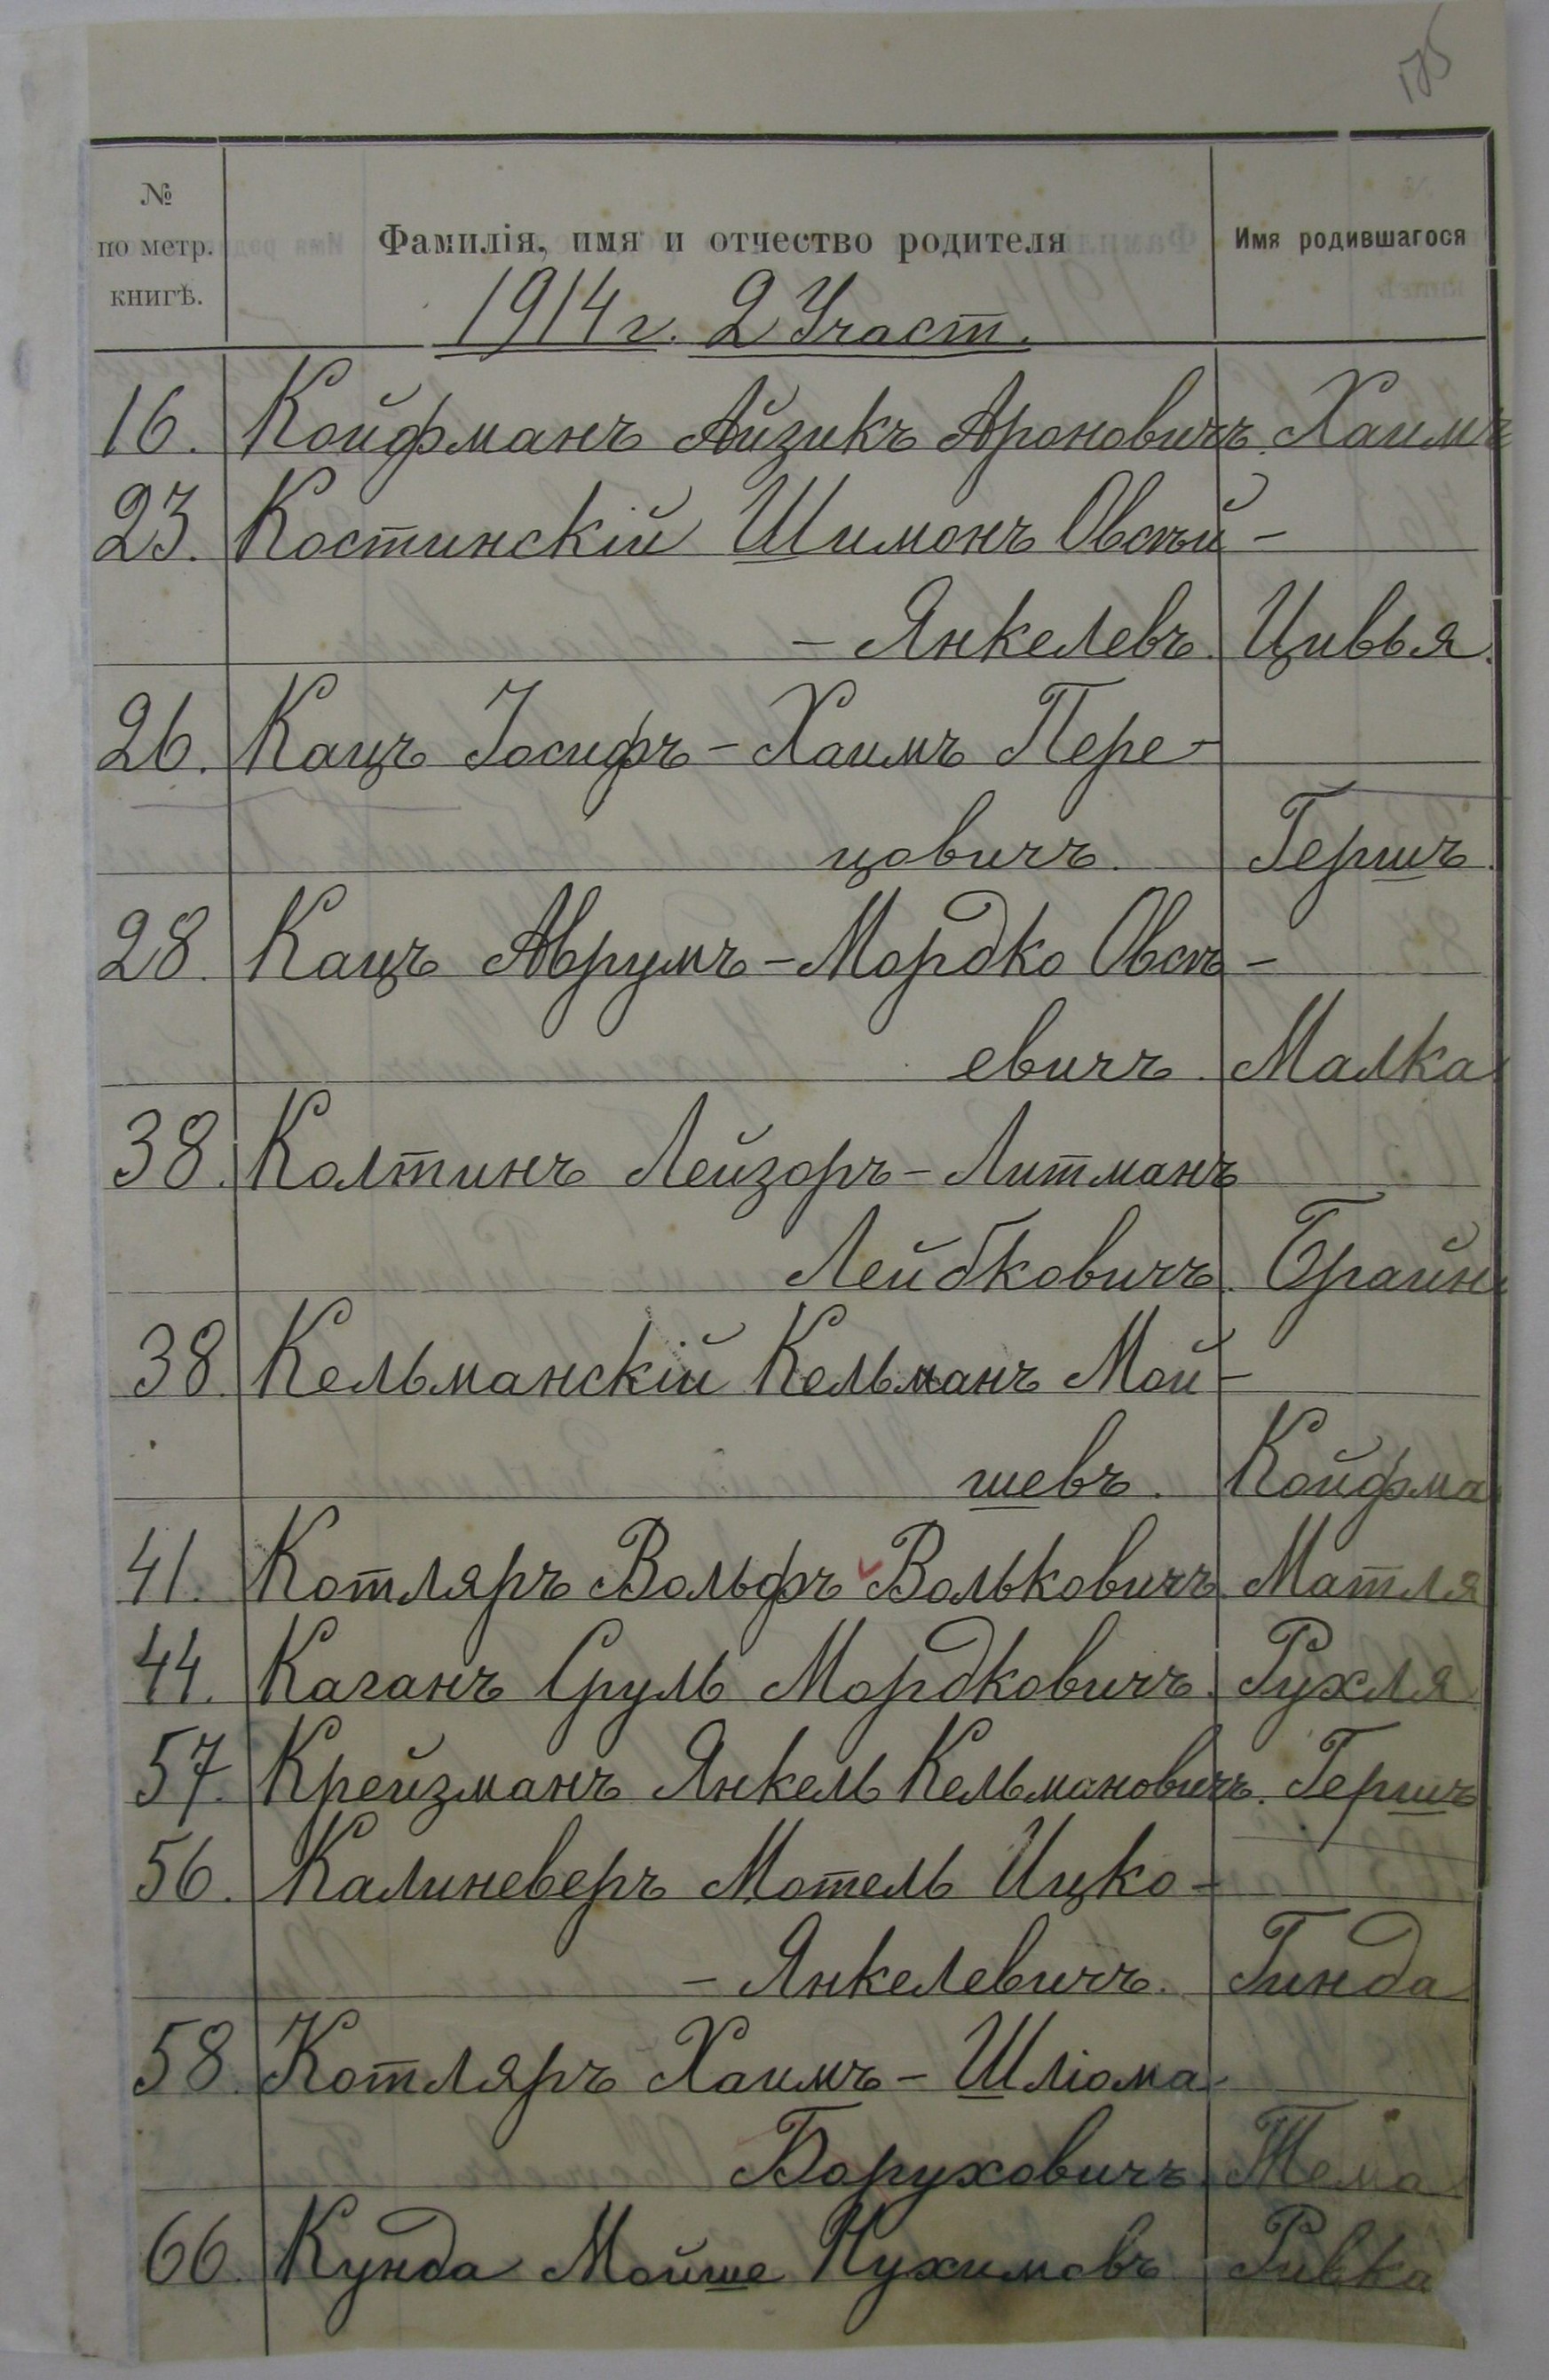 175
№ по метр. книгѣ.
Фамилія, имя и отчество родителя
Имя родившагося
1914 г. 2 Участ.
16. Койфманъ Айзикъ Ароновичъ. Хаимъ
23. Костинскій Шимонъ Овсѣй-
- Янкелевъ. Цивья.
26. Кацъ Іосифъ - Хаимъ Пере-
цовичъ. Гершъ.
28. Кацъ Аврумъ - Мордко Овсѣ-
евичъ. Малка
38. Колтинъ Лейзоръ - Литманъ
Лейбковичъ. Брайн
38. Кельманскій Кельманъ Мой-
шевъ. Койфма
41. Котляръ Вольфъ Вольковичъ. Матля
44. Каганъ Сруль Мордковичъ. Рухля
57. Крейзманъ Янкель Кельмановичъ. Гершъ
56. Калиневеръ Мотель Ицко-
- Янкелевичъ. Гинда
58. Котляръ Хаимъ - Шліома
Боруховичъ. Тема
66. Кунда Мойше Нухимовъ Ривка